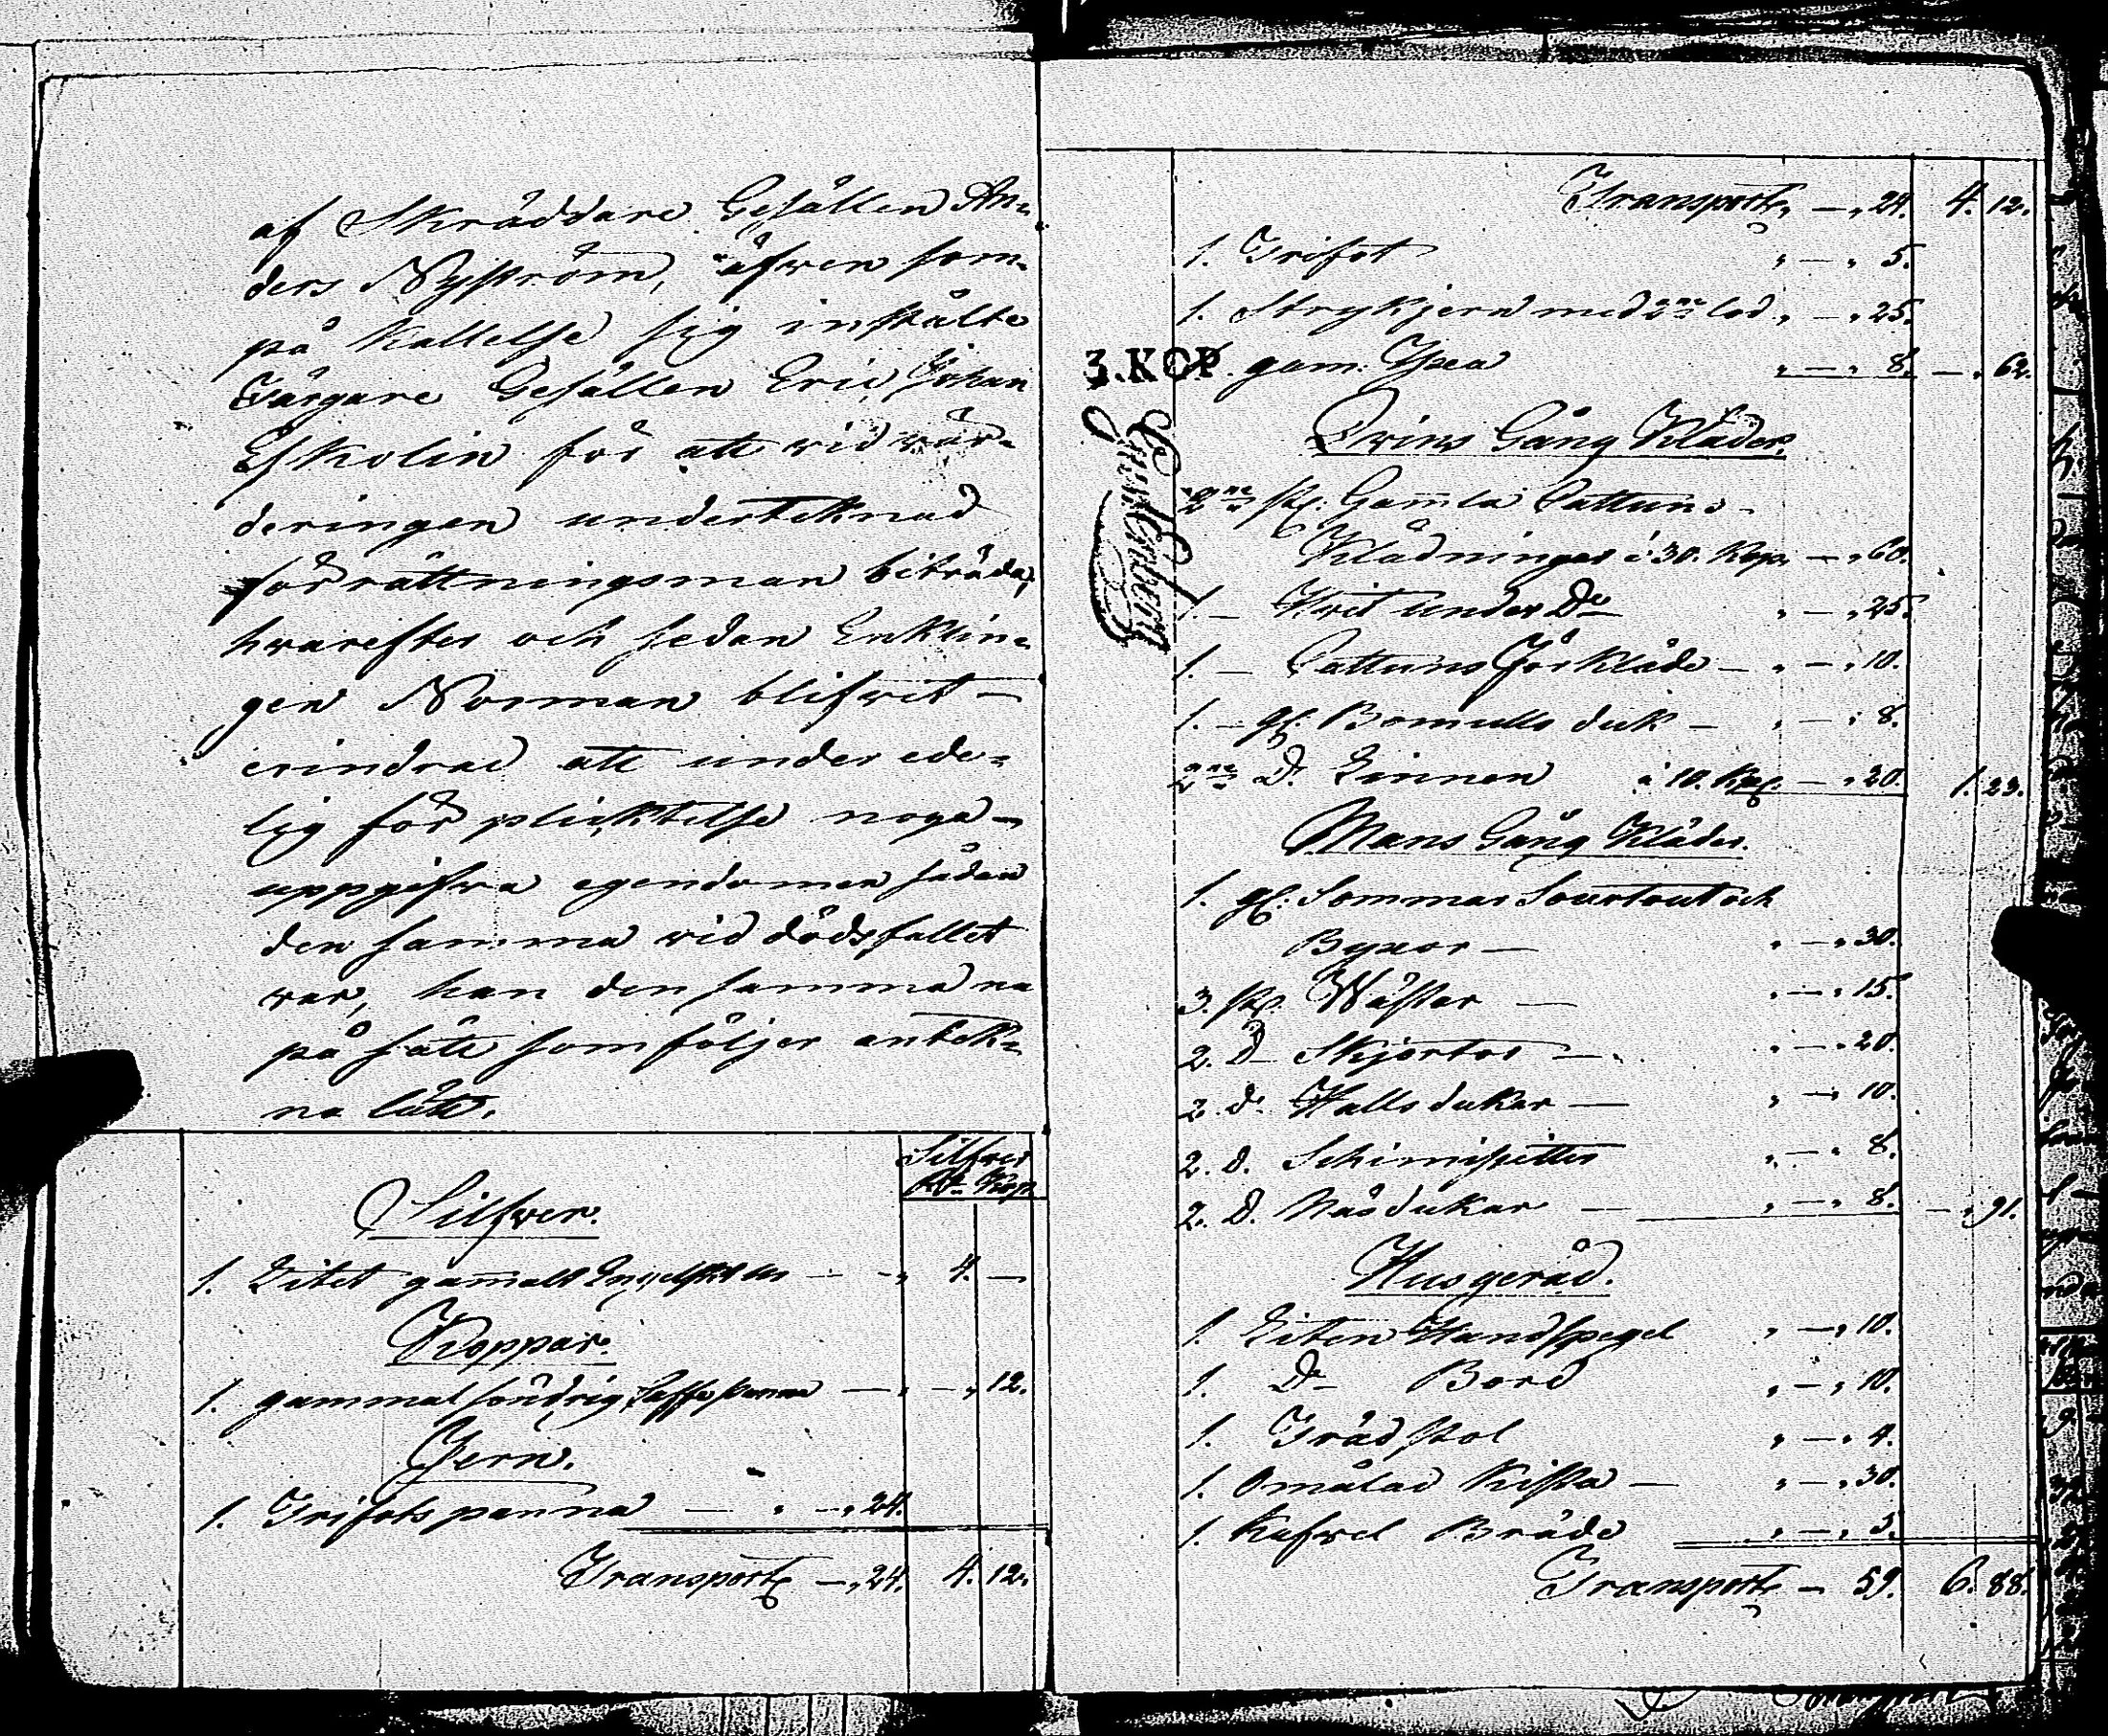 af Skräddare Gesällen An=
ders Nyström, äfwen som
på kallelse sig instälte
Färgare Gesällen Eric Johan
Eskolin för att vid vär=
deringen undertecknad
förrättningsman biträda,
hvarefter och sedan Enklin=
gen Norman blifwit
erindrad att under ede=
lig förplicktelse noga
uppgifwa egendomen sådan
den samma vid dödsfallet
var, han den samma
på sätt som följer anteck=
na lätt.
Silfver
Rbl. Kop.
Silfwer.
1. Litet gammalt Engelskt ur — „ 4. —
Koppar.
1. gammal söndrig Caffe panna — „ — „ 12.
Jern.
1. Trifots panna — „ — „ 24.
Transport — „ 24. 4. 12.
Transport „ — „ 24. 4. 12.
1. Trifot „ — „ 5.
1. Strykjern med 2ne lod „ — „ 25.
1. gam. Yxa „ — „ 8. — „ 62.
3. KOP.
Qvins Gång Kläder.
2ne st. Gamla Cattuns
Klädningar à 30. Kop. — „ 60.
1. — Hvit under Do „ — „ 25.
1. — Cattuns Förkläde — „ — „ 10.
1. — gl. Bomulls duk — „ — „ 8.
2ne Do Linnen à 10. Kop. — „ 20. 1. 23.
Mans Gång Kläder.
1. gl. Sommar Sourtout och
Byxor — „ — „ 30.
3. st. Wästar — „ — „ 15.
2. Do Skjortor — „ — „ 20.
2. do Halls dukar — „ — „ 10.
2. d. Schimisetter „ — „ 8.
2. D. Näsdukar — „ — „ 8. — „ 91.
Husgeråd.
1. Liten Handspegel „ — „ 10.
1. Do Bord „ — „ 10.
1. Träd stol „ — „ 4.
1. Omålad Kista — „ — „ 30.
1. Kafwel Bräde „ — „ 5.
Transport — 59. 6. 88.